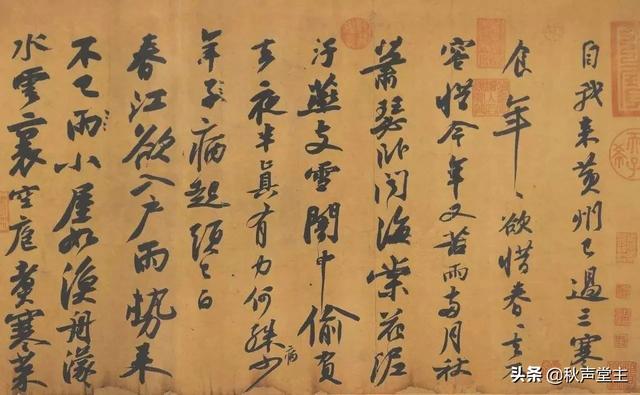 自我來黄州已過三寒
食年〻欲惜春〻去不
容惜今年又苦雨兩月秋
蕭瑟卧聞海棠花泥
汙燕支雪闇中偷負
去夜半真有力何殊少
病
年子病起頭已白
春江欲入户雨勢来
不已雨小屋如漁舟濛〻
水雲裏空庖煮寒菜
头条 @秋声堂主